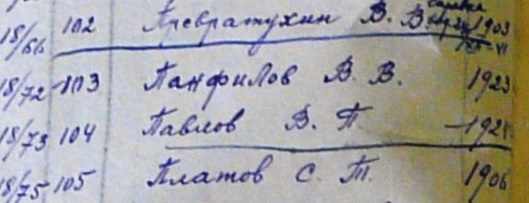 18/66 102 Превратухин В. В. 1903
18/72 103 Панфилов В. В. 1923
18/73 104 Павлов В. П. 192
18/75 105 Платов С. Т. 1906